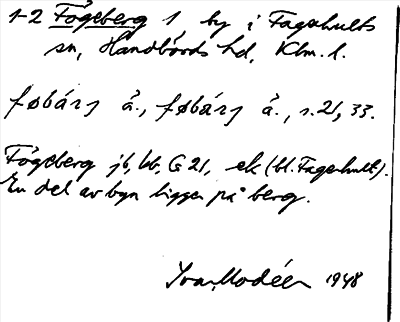 1-2 Fågeberg 1 by i Fagerhults
sn, Handbörds hd, Klm. l.
føbárj å., føbárj å., s. 21, 33.
Fågeberg jb, bb, G 21, ek (bl. Fagerhult).
En del av byn ligger på berg.
Ivar Modéer 1948